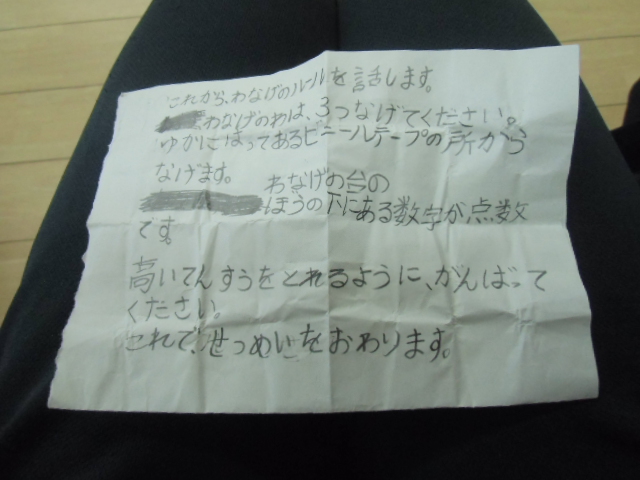 これから、わなげのルールを話します。
わなげのわは、3つなげてください。
ゆかにはってあるビニールテープの所から
なげます。
わなげの台の
ほうの下にある数字が点数
です。
高いてんすうをとれるように、がんばって
ください。
これで、せつめいをおわります。